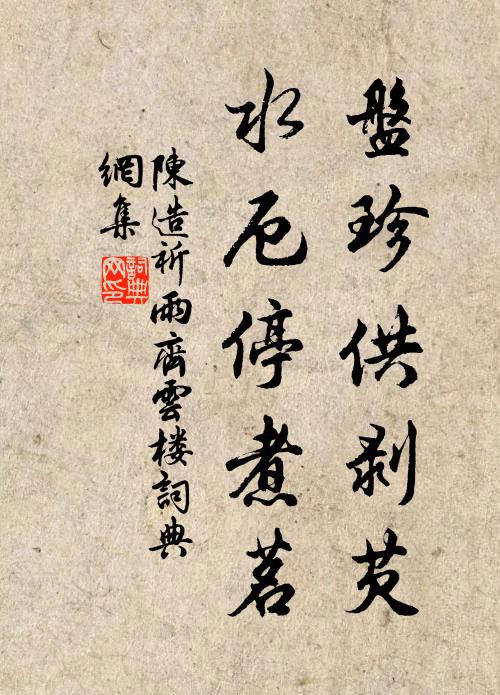 盤珍供剥芡
水厄停煮茗
陳造祈雨齊雲楼詞典
網集
詞典
网印